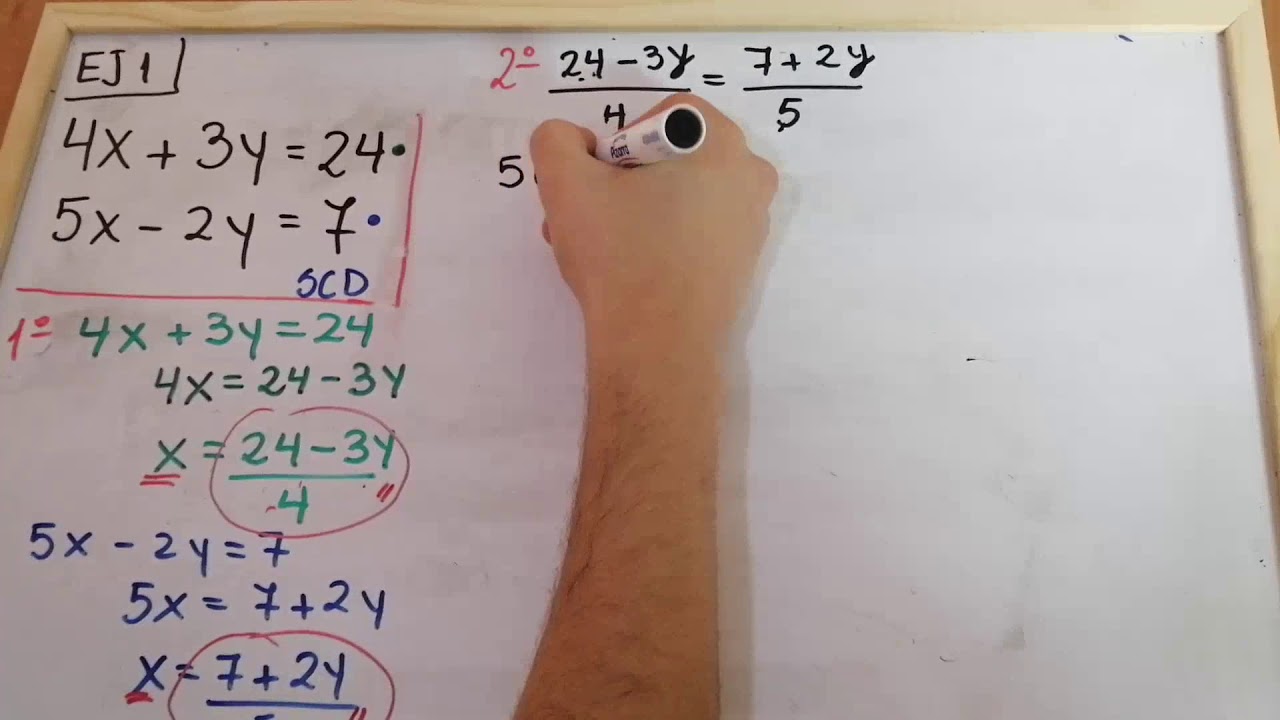 EJ 1
4x + 3y = 24
5x - 2y = 7
SCD
1º 4x + 3y = 24
4x = 24 - 3y
x = 24 - 3y
4
5x - 2y = 7
5x = 7 + 2y
x = 7 + 2y
2º 24 - 3y = 7 + 2y
4 5
5